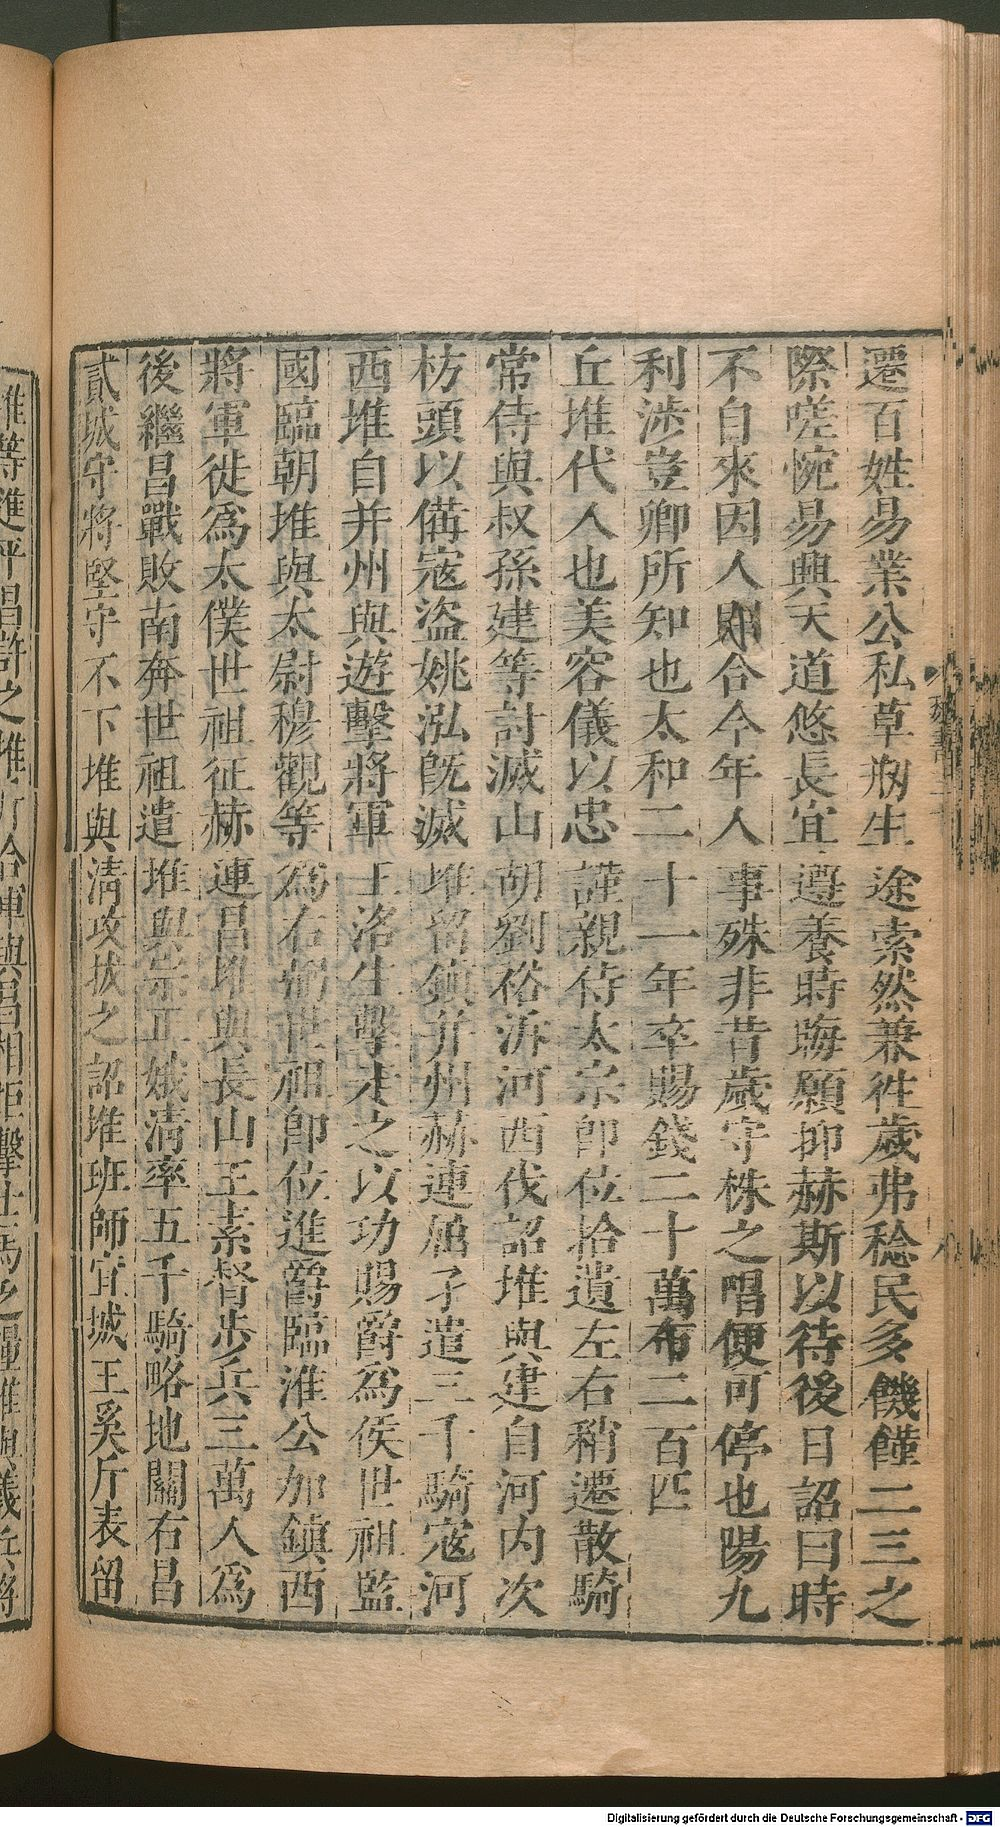 遷百姓易業公私草刱生途索然兼徃歲弗稔民多饑饉二三之
際嗟惋易興天道悠長宜遵養時晦願抑赫斯以待後日詔曰時
不自來因人則合今年人事殊非昔歲守株之唱便可停也陽九
利涉豈卿所知也太和二十一年卒賜錢二十萬布二百匹
丘堆代人也美容儀以忠謹親待太宗即位拾遺左右稍遷散騎
常侍與叔孫建等討滅山胡劉裕泝河西伐詔堆與建自河內次
枋頭以備寇盜姚泓旣滅堆留鎮并州赫連屈孑遣三千騎寇河
西堆自并州與遊擊將軍王洛生擊走之以功賜爵爲侯世祖監
國臨朝堆與太尉穆觀等爲右弼世祖即位進爵臨淮公加鎮西
將軍徙爲太僕世祖征赫連昌堆與長山王素督步兵三萬人爲
後繼昌戰敗南奔世祖遣堆與宗正娥淸率五千騎略地關右昌
貳城守將堅守不下堆與淸攻拔之詔堆班師宜城王奚斤表留
Digitalisierung gefördert durch die Deutsche Forschungsgemeinschaft - DFG